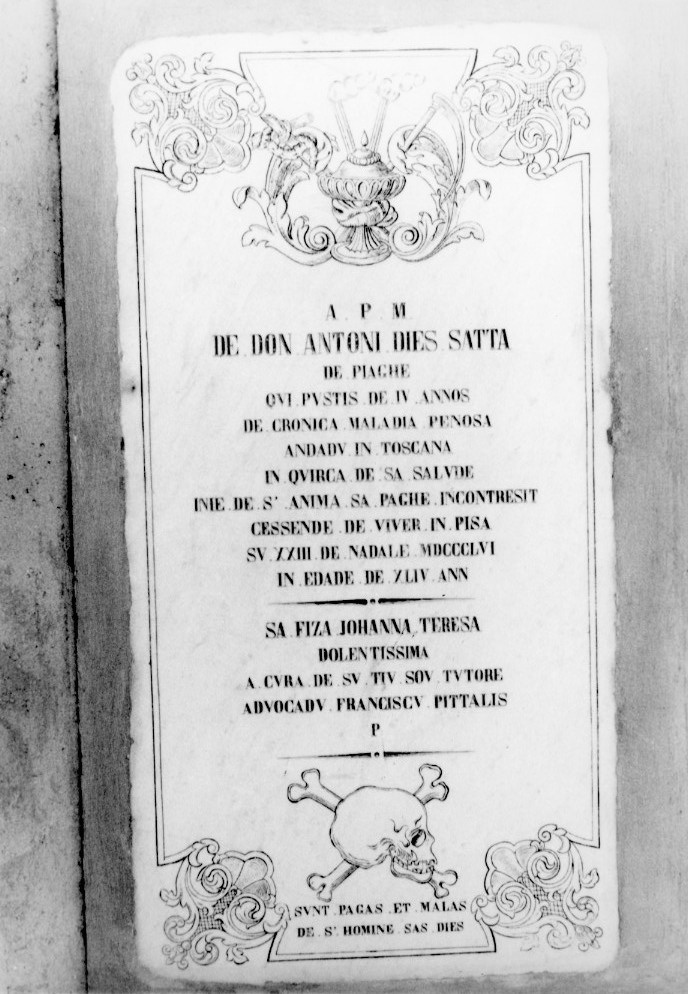 A . P . M
DE . DON . ANTONI . DIES . SATTA
DE . PIAGHE
QVI . PVSTIS . DE . IV . ANNOS
DE . CRONICA . MALADIA . PENOSA
ANDADV . IN . TOSCANA
IN . QVIRCA . DE . SA . SALVDE
INIE . DE . S' . ANIMA . SA . PAGHE . INCONTRESIT
CESSENDE . DE . VIVER . IN . PISA
SV . XXIII . DE . NADALE . MDCCCLVI
IN . EDADE . DE . XLIV . ANN
SA . FIZA . JOHANNA . TERESA
DOLENTISSIMA
A . CVRA . DE . SV . TIV . SOV . TVTORE
ADVOCADV . FRANCISCV . PITTALIS
P
SVNT . PAGAS . ET . MALAS
DE . S' . HOMINE . SAS . DIES